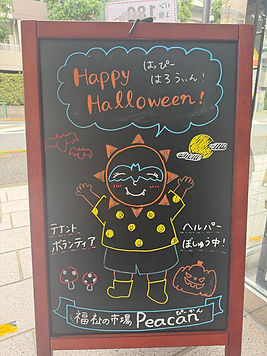 Happy
はっぴー
はろうぃん!
Halloween!
テナント
ボランティア
ヘルパー
ぼしゅう中!
福祉の市場 Peacan
ぴーかん